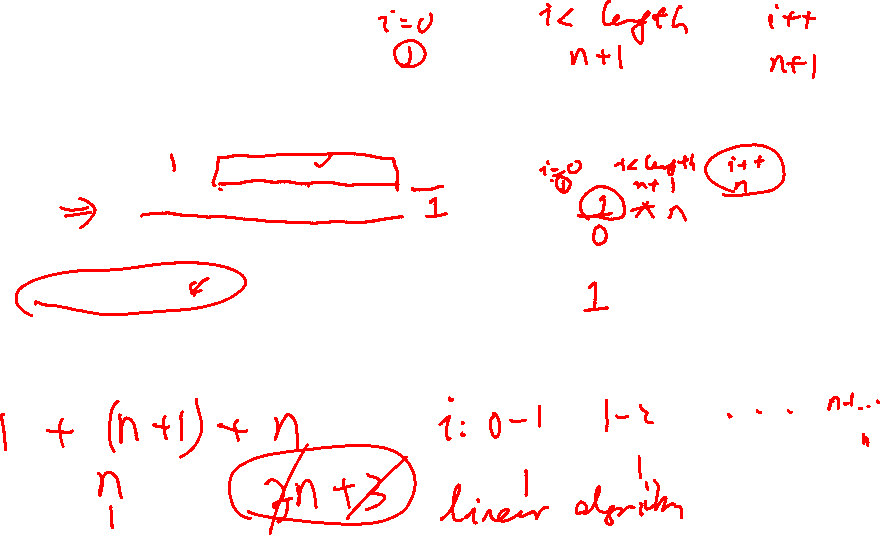 i=0 i< length i++
1 n+1 n+1
1 i=0 i< length i++
1 n+1 n
⇒ 1 1 * n
0
1
1 + (n+1) + n i: 0-1 1-2 ... n-1...
n 2n+3 linear algorithm
1